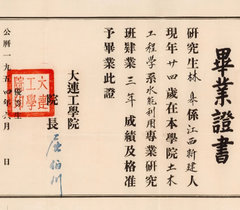 畢業證書
研究生林皋係江西新建人
現年廿四歲在本學院土木
工程學系水能利用專業研究
班肄業三年成績及格准
予畢業此證
大連工學院
院長 屈伯川
公曆一九五四年六月 日